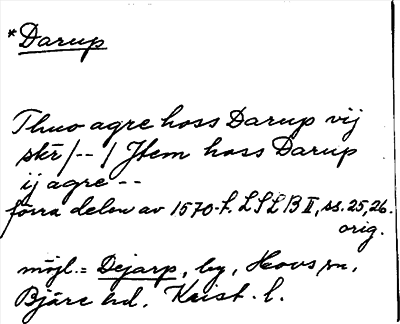 *Darup
Thuo agre hoss Darup vij
skr/--/Jtem hoss Darup
ij agre --
förra delen av 1570-t. LSLB II, ss. 25, 26.
orig.
möjl. = Dejarp, by, Hovs sn,
Bjäre hd, Krist. l.